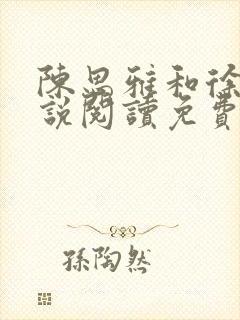 陳思雅和徐
說閱讀免費
孫陶然